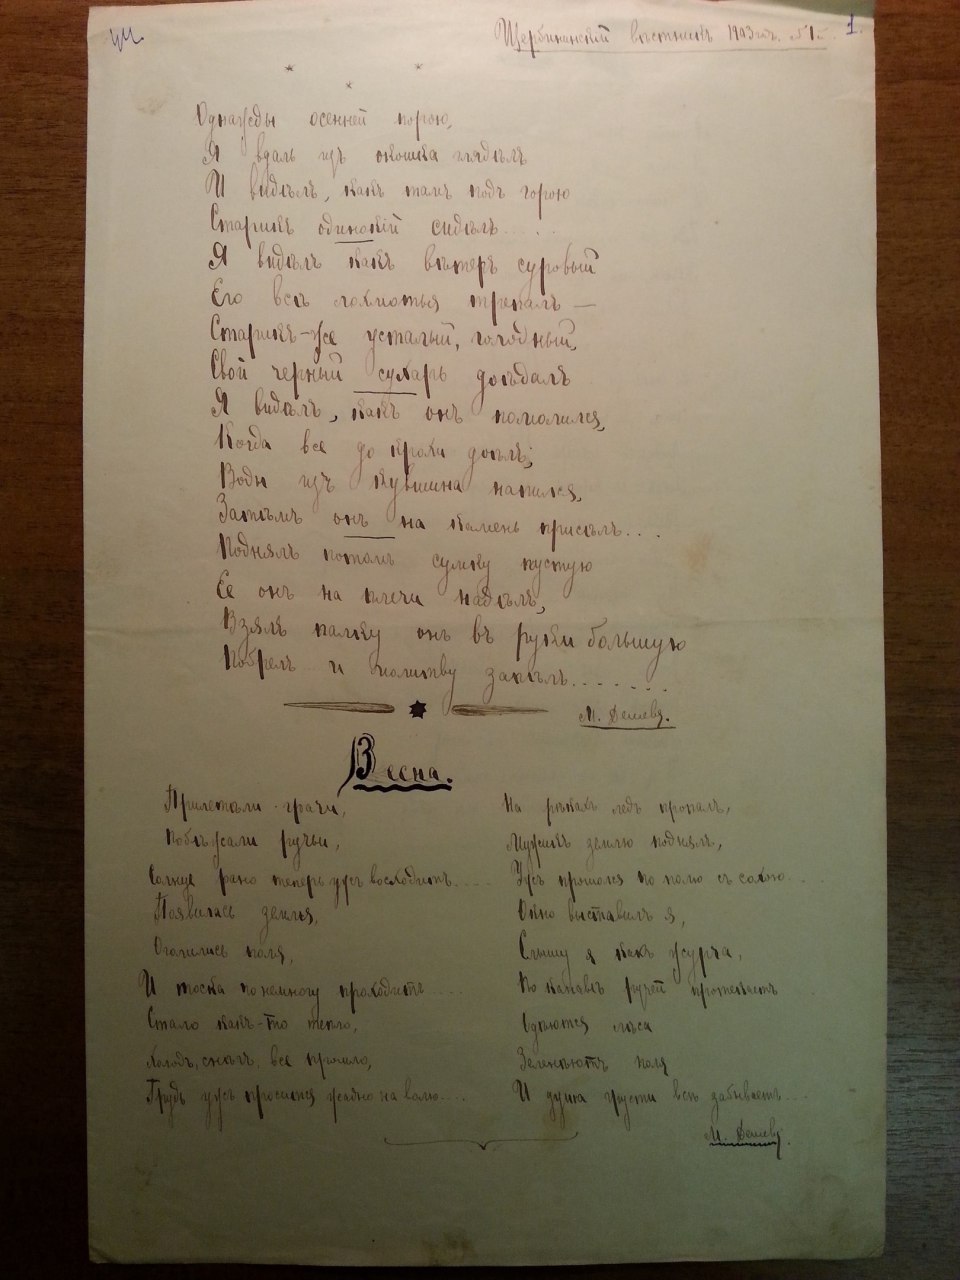 Щербинскій вѣстникъ 1903 годъ. №1. 1.
* * *
Однажды осенней порою,
Я вдаль изъ окошка глядѣлъ
И видѣлъ, какъ тамъ подъ горою
Старикъ одинокій сидѣлъ....
Я видѣлъ какъ вѣтеръ суровый
Его всѣ лохмотья трепалъ —
Старикъ-же усталый, голодный,
Свой черный сухарь доѣдалъ
Я видѣлъ, какъ онъ помолился,
Когда все до крохи доѣлъ;
Воды изъ кувшина напился,
Затѣмъ онъ на камень присѣлъ...
Поднялъ потомъ сумку пустую
Ее онъ на плечи надѣлъ,
Взялъ палку онъ въ руки большую
Побрелъ и молитву запѣлъ.......
М. Дешевъ.
Весна.
Прилетѣли-грачи,
Побѣжали ручьи,
Солнце рано теперь ужъ восходитъ.....
Появилась земля,
Оголились поля,
И тоска понемногу проходитъ.....
Стало какъ-то тепло,
Холодъ, снѣгъ, все прошло,
Грудь ужъ просится жадно на волю....
На рѣкахъ ледъ пропалъ,
Мужикъ землю поднялъ,
Ужъ прошолся по полю съ сохою...
Окно выставилъ я,
Слышу я какъ журча,
По канавѣ ручей протекаетъ
Одѣются лѣса
Зеленѣютъ поля
И душа грусти всѣ забываетъ....
М. Дешевъ.